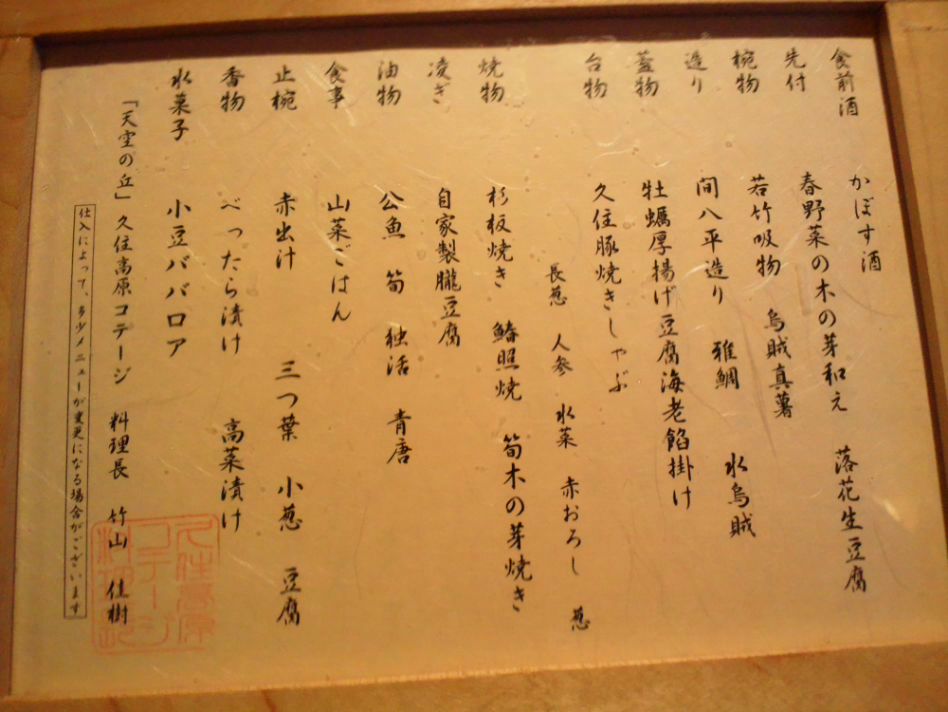 食前酒 かぼす酒
先付 春野菜の木の芽和え 落花生豆腐
椀物 若竹吸物 烏賊真薯
造り 間八平造り 雅鯛 水烏賊
蓋物 牡蠣厚揚げ豆腐海老餡掛け
台物 久住豚焼きしゃぶ
長葱 人参 水菜 赤おろし 葱
焼物 杉板焼き 鰆照焼 筍木の芽焼き
凌ぎ 自家製朧豆腐
油物 公魚 筍 独活 青唐
食事 山菜ごはん
止椀 赤出汁 三つ葉 小葱 豆腐
香物 べったら漬け 高菜漬け
水菓子 小豆ババロア
「天空の丘」久住高原コテージ 料理長 竹山 佳樹
仕入によって、多少メニューが変更になる場合がございます